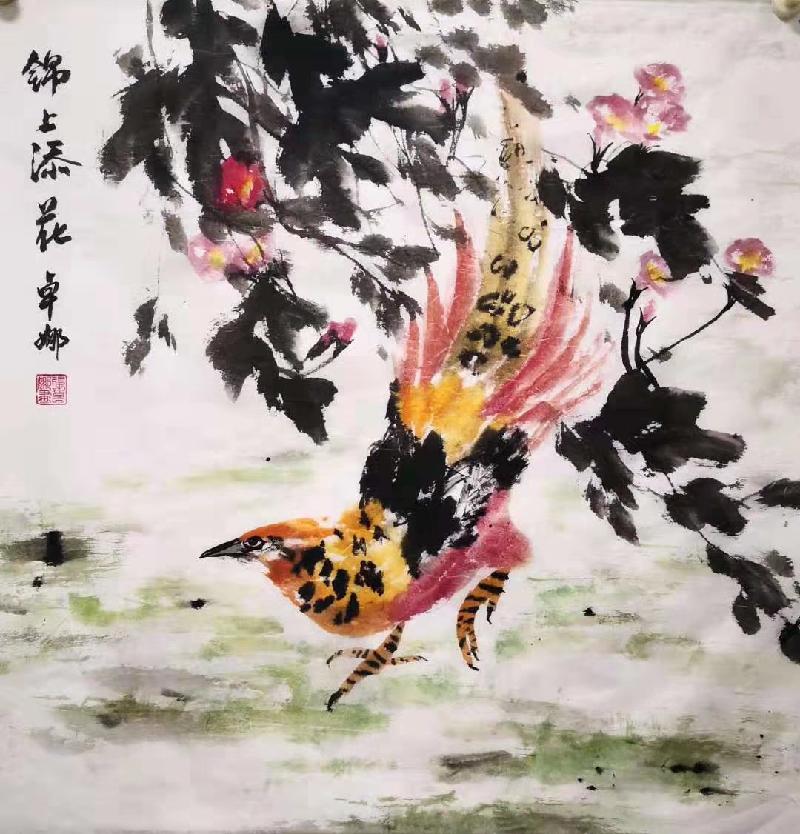 锦上添花 卓娜